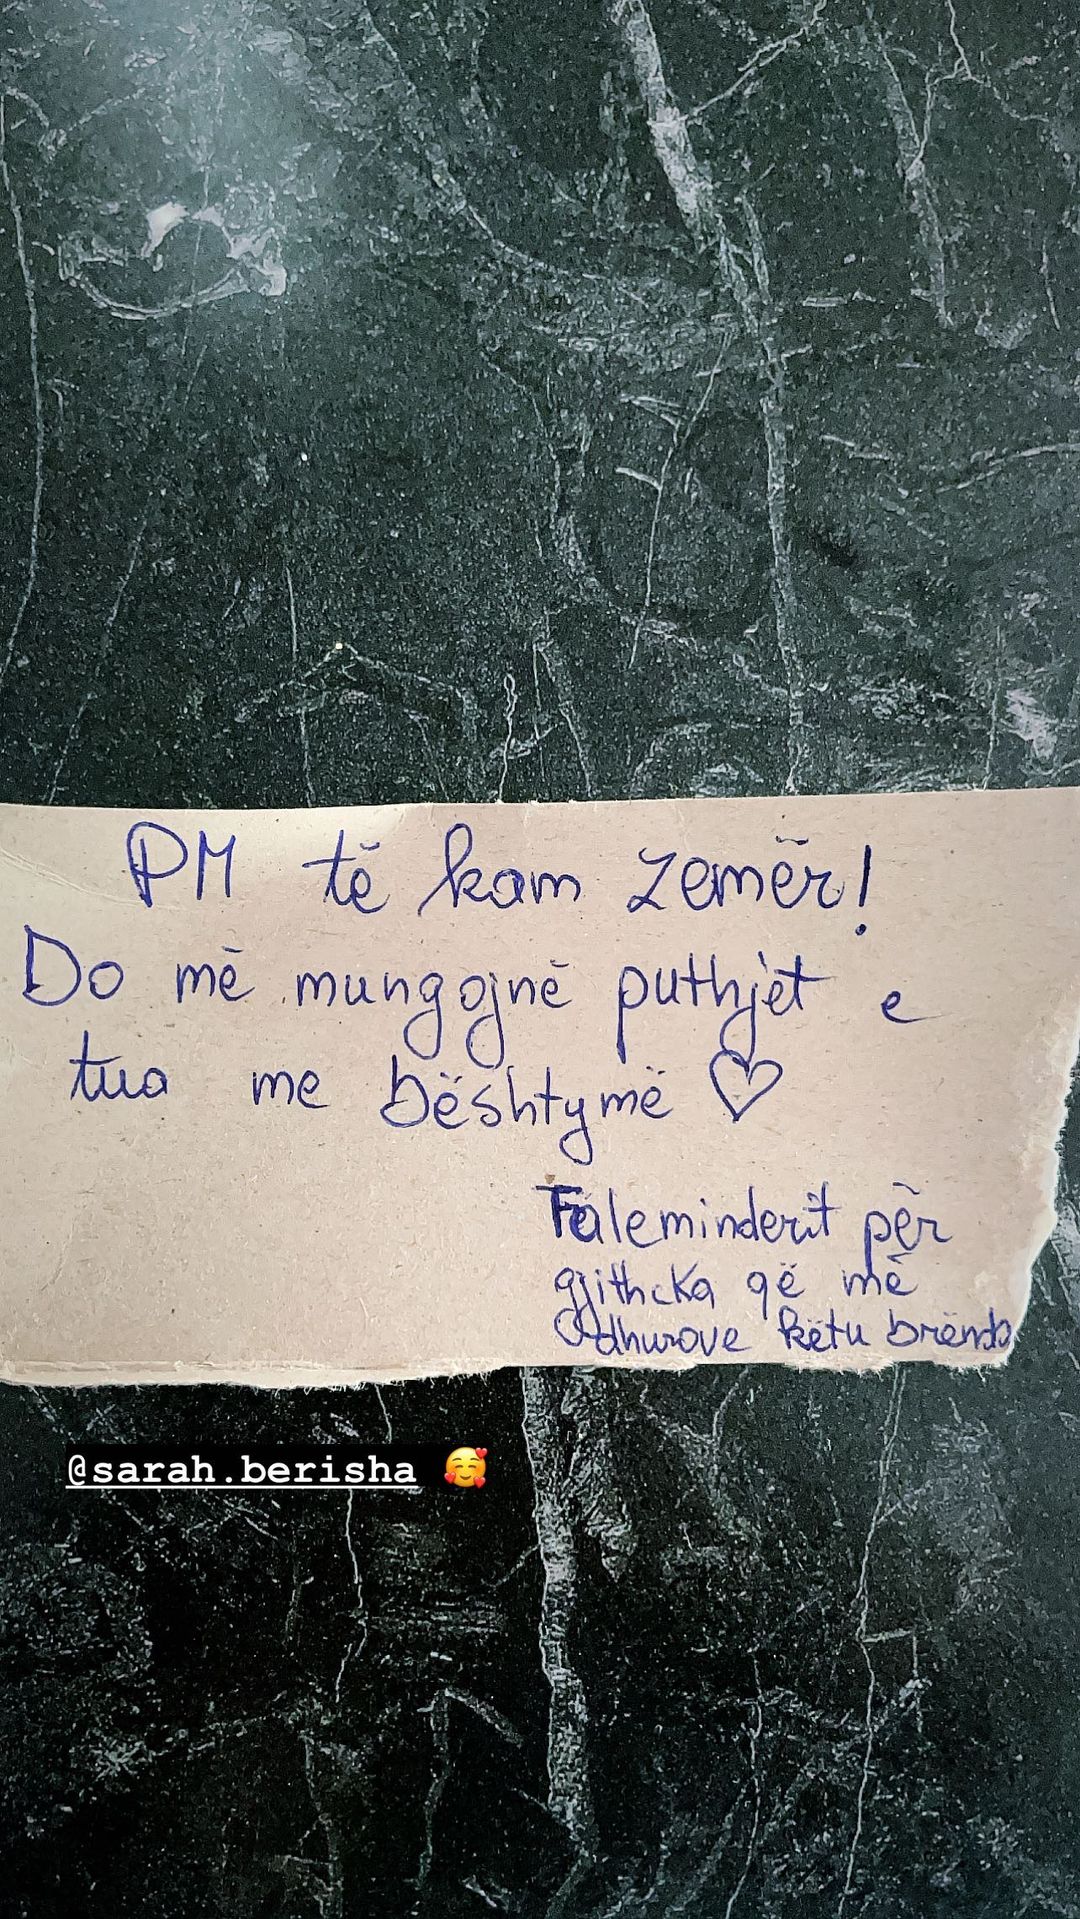 PM të kam zemër!
Do më mungojnë puthjet e
tua me bështymë ♡
Faleminderit për
gjithcka që më
dhurove këtu brënda
@sarah.berisha 🥰